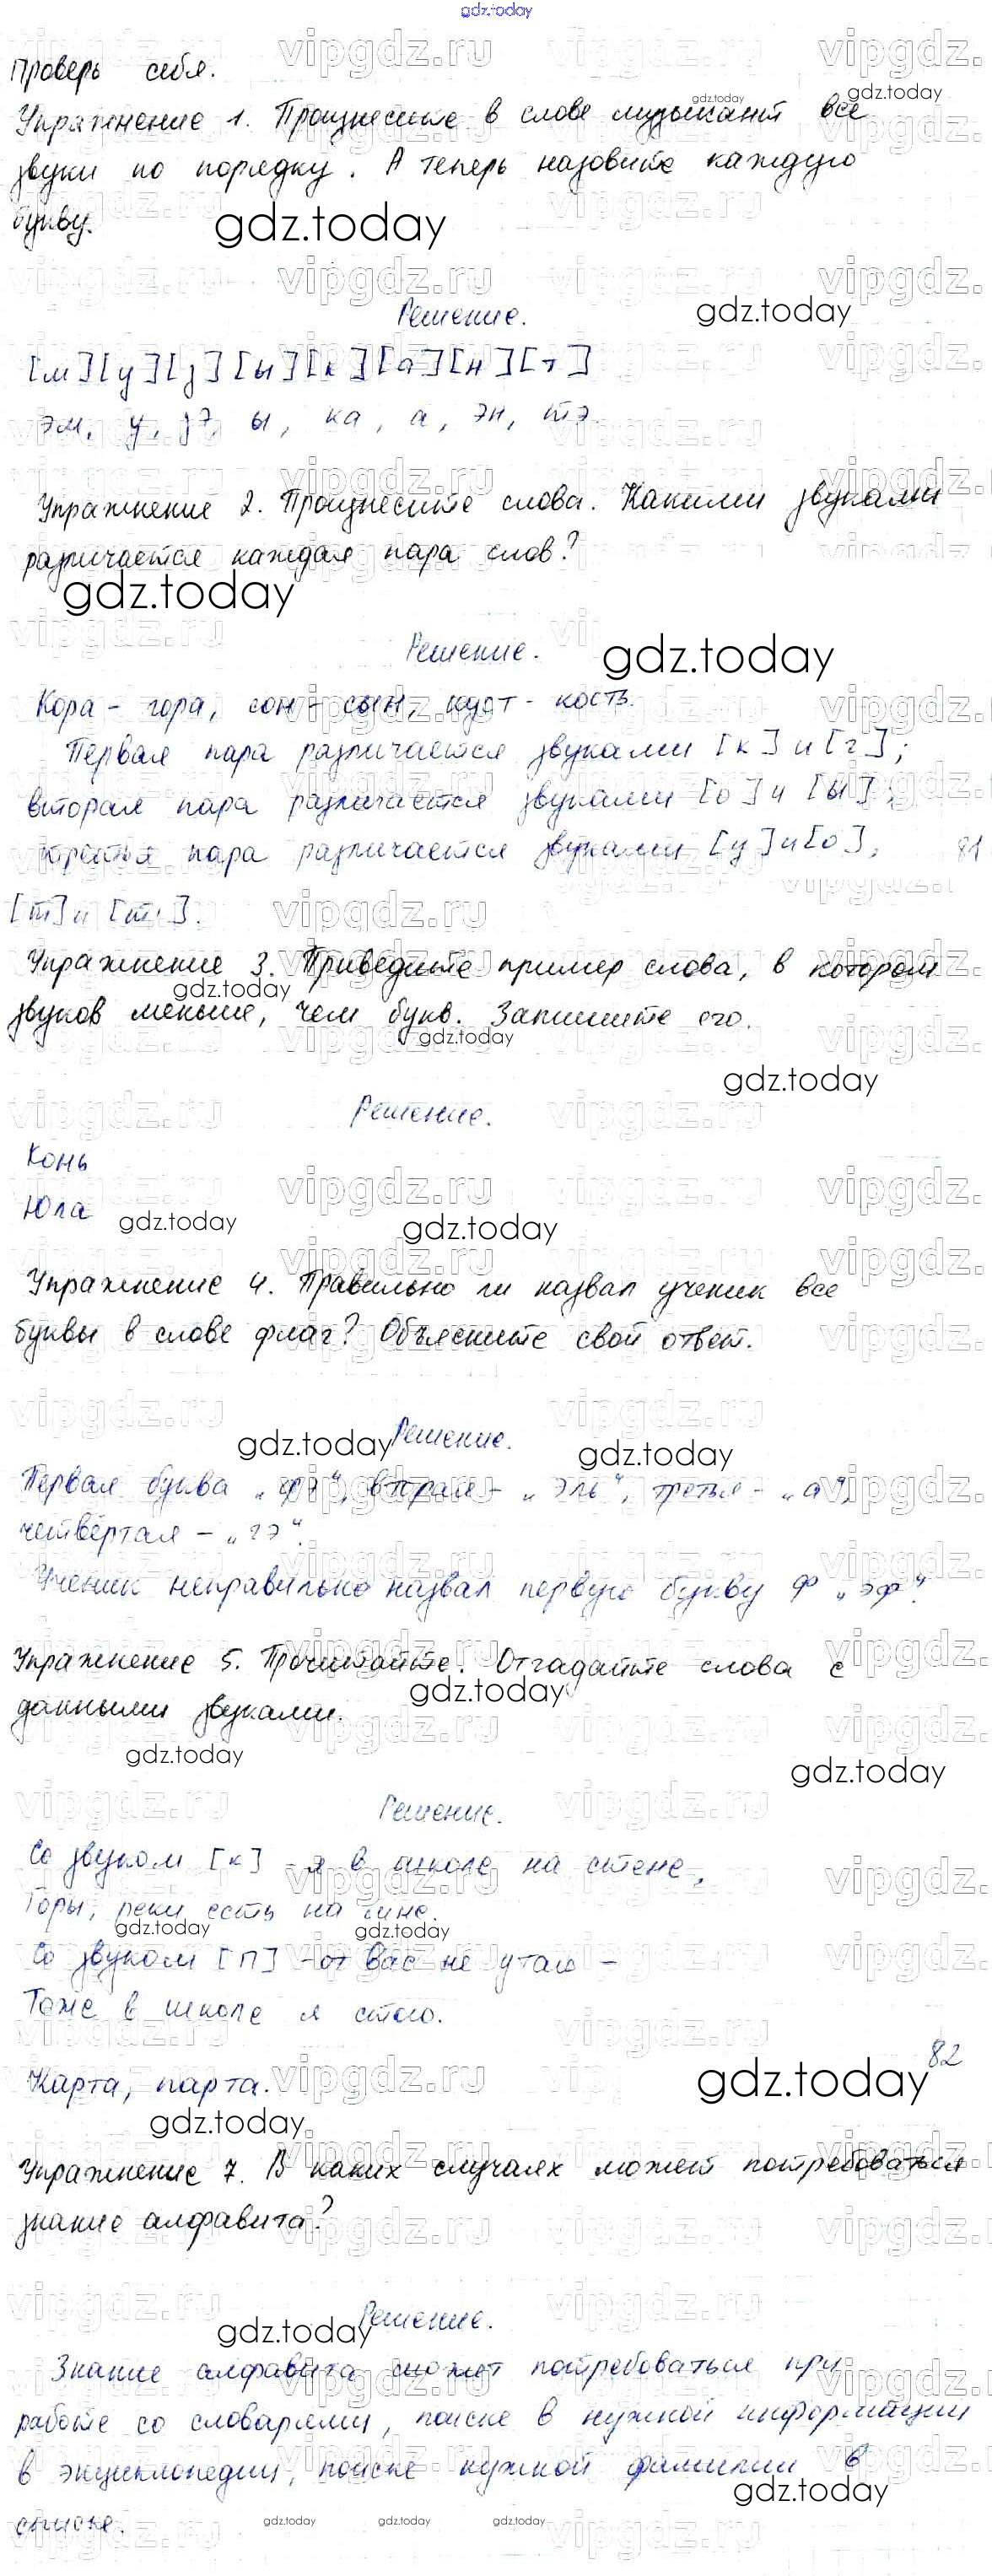 gdz.today
Проверь себя.
Упражнение 1. Произнесите в слове музыкант все
звуки по порядку. А теперь назовите каждую
букву.
Решение.
[м][у][з][ы][к][а][н][т]
эм, у, зэ, ы, ка, а, эн, тэ.
Упражнение 2. Произнесите слова. Какими звуками
различается каждая пара слов?
Решение.
Кора - гора, сон - сын, куст - кость.
Первая пара различается звуками [к] и [г];
вторая пара различается звуками [о] и [ы];
третья пара различается звуками [у] и [о],
81
[т] и [т'].
Упражнение 3. Приведите пример слова, в котором
звуков меньше, чем букв. Запишите его.
Решение.
Конь
Юла
Упражнение 4. Правильно ли назвал ученик все
буквы в слове флаг? Объясните свой ответ.
Решение.
Первая буква - „фэ“, вторая - „эль“, третья - „а“,
четвёртая - „гэ“.
Ученик неправильно назвал первую букву ф „эф“.
Упражнение 5. Прочитайте. Отгадайте слова с
данными звуками.
Решение.
Со звуком [к] - я в школе на стене,
Горы, реки есть на мне.
Со звуком [п] - от вас не утаю -
Тоже в школе я стою.
82
Карта, парта.
Упражнение 7. В каких случаях может потребоваться
знание алфавита?
Решение.
Знание алфавита может потребоваться при
работе со словарями, поиске в нужной информации
в энциклопедии, поиске нужной фамилии в
списке.